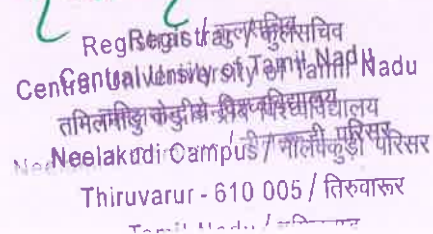 Registrar / कुलसचिव
Central University of Tamil Nadu
तमिलनाडु केन्द्रीय विश्वविद्यालय
Neelakudi Campus / नीलक्कुडी परिसर
Thiruvarur - 610 005 / तिरुवारूर
Tamil Nadu /